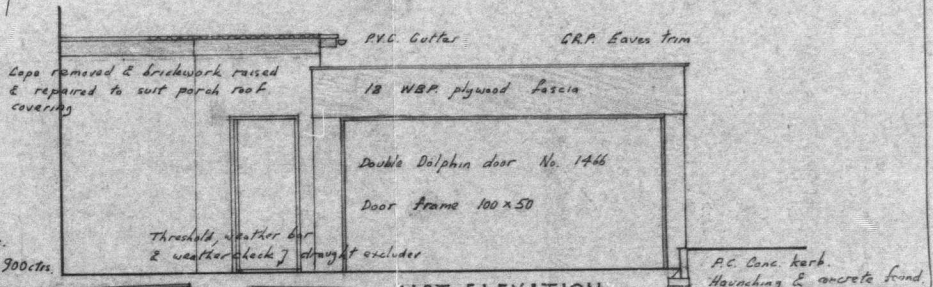 P.V.C. Gutter
G.R.P. Eaves trim
Cope removed & brickwork raised
& repaired to suit porch roof
covering
18 WBP. plywood fascia
Double Dolphin door No. 1466
Door frame 100 x 50
Threshold, weather bar
& weathercheck & draught excluder
900ctrs.
P.C. Conc. kerb.
Haunching & concrete found.
ELEVATION